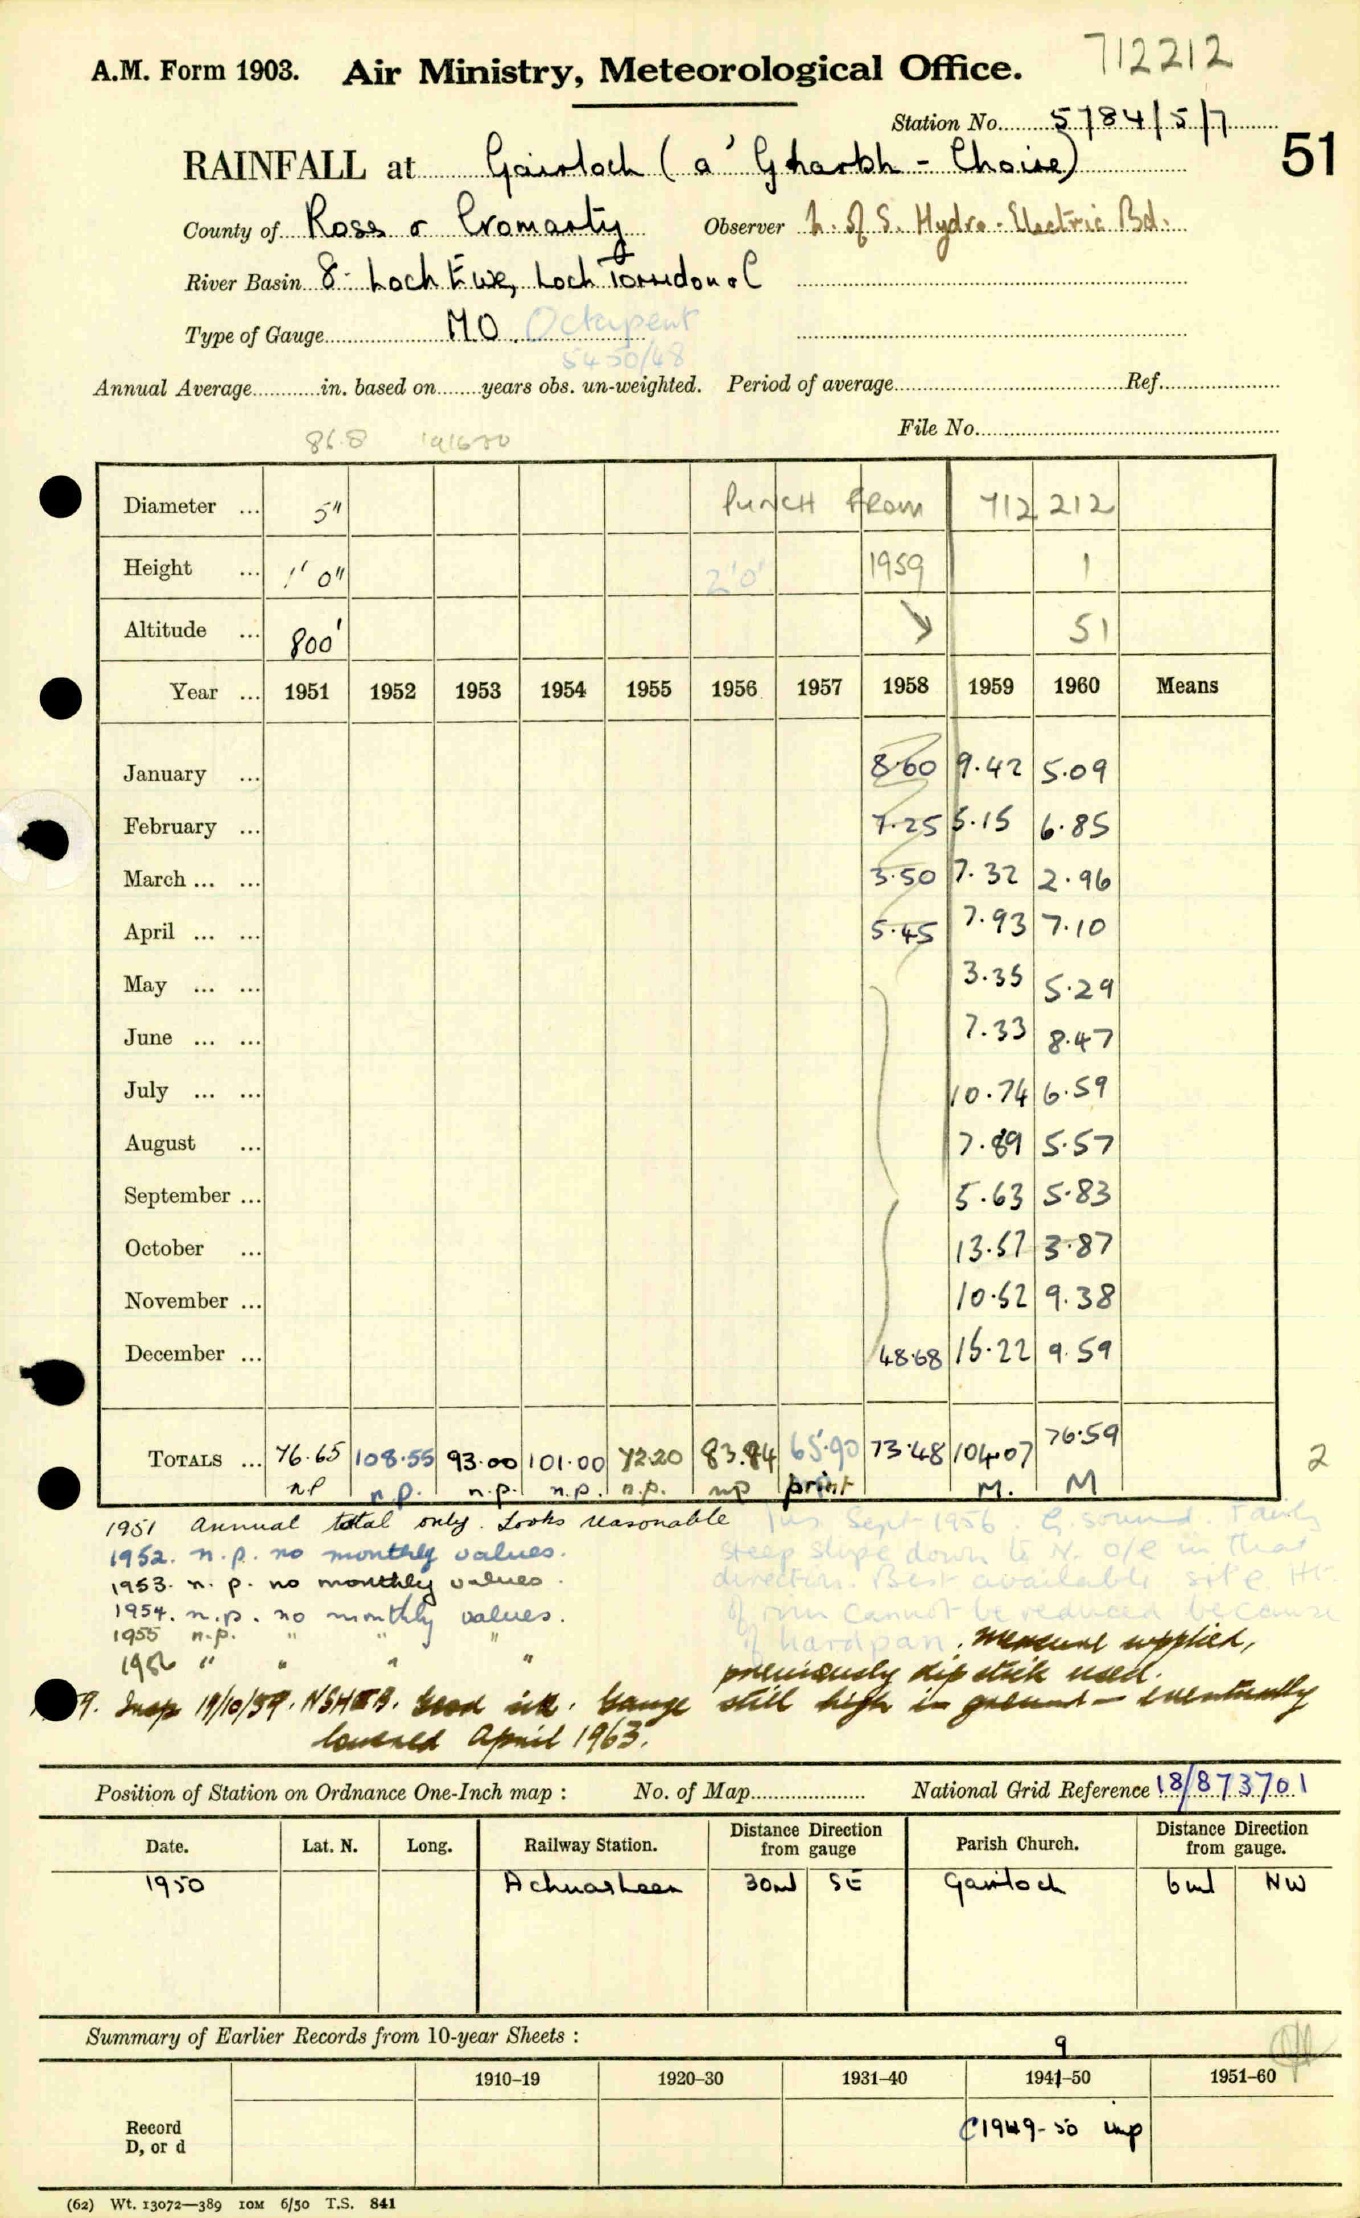 712212
A.M. Form 1903. Air Ministry, Meteorological Office.
Station No. 5784/5/7
51
RAINFALL at Gairloch (a' Gharbh - Choire)
County of Ross & Cromarty Observer N. of S. Hydro-Electric Bd.
River Basin 8. Loch Ewe, Loch Torridon &c
Type of Gauge MO Octapent
5450/48
Annual Average in. based on years obs. un-weighted. Period of average Ref.
File No.
86.8 1916-50
Diameter ... 5" PUNCH FROM 712 212
Height ... 1' 0" 2'0" 1959 1
Altitude ... 800' 51
Year ... 1951 1952 1953 1954 1955 1956 1957 1958 1959 1960 Means
January ... 8.60 9.42 5.09
February ... 7.25 5.15 6.85
March ... ... 3.50 7.32 2.96
April ... ... 5.45 7.93 7.10
May ... ... 3.35 5.29
June ... ... 7.33 8.47
July ... ... 10.74 6.59
August ... 7.89 5.57
September ... 5.63 5.83
October ... 13.57 3.87
November ... 10.52 9.38
December ... 48.68 15.22 9.59
TOTALS ... 76.65 108.55 93.00 101.00 72.20 83.84 65.90 73.48 104.07 76.59
2
n.p n.p. n.p. n.p. n.p. np print M. M
1951 Annual total only. Looks reasonable
1952. n.p. no monthly values.
1953. n.p. no monthly values.
1954. n.p. no monthly values.
1955 n.p. " " "
1956 " " " "
Ins Sept 1956. G. sound. Fairly
steep slope down to N. o/e in that
direction. Best available site. Ht.
of rim cannot be reduced because
of hardpan. Measure supplied,
previously dip stick used.
9. Insp 19/10/59. NSHEB. Good site. Gauge still high in ground - eventually
lowered April 1963.
Position of Station on Ordnance One-Inch map : No. of Map National Grid Reference 18/873701
Date. Lat. N. Long. Railway Station. Distance Direction from gauge Parish Church. Distance Direction from gauge.
1950 Achnasheen 30ml SE Gairloch 6ml NW
Summary of Earlier Records from 10-year Sheets :
9
1910–19 1920–30 1931–40 1941–50 1951–60
Record
D, or d
C1949-50 imp
(62) Wt. 13072—389 10M 6/50 T.S. 841